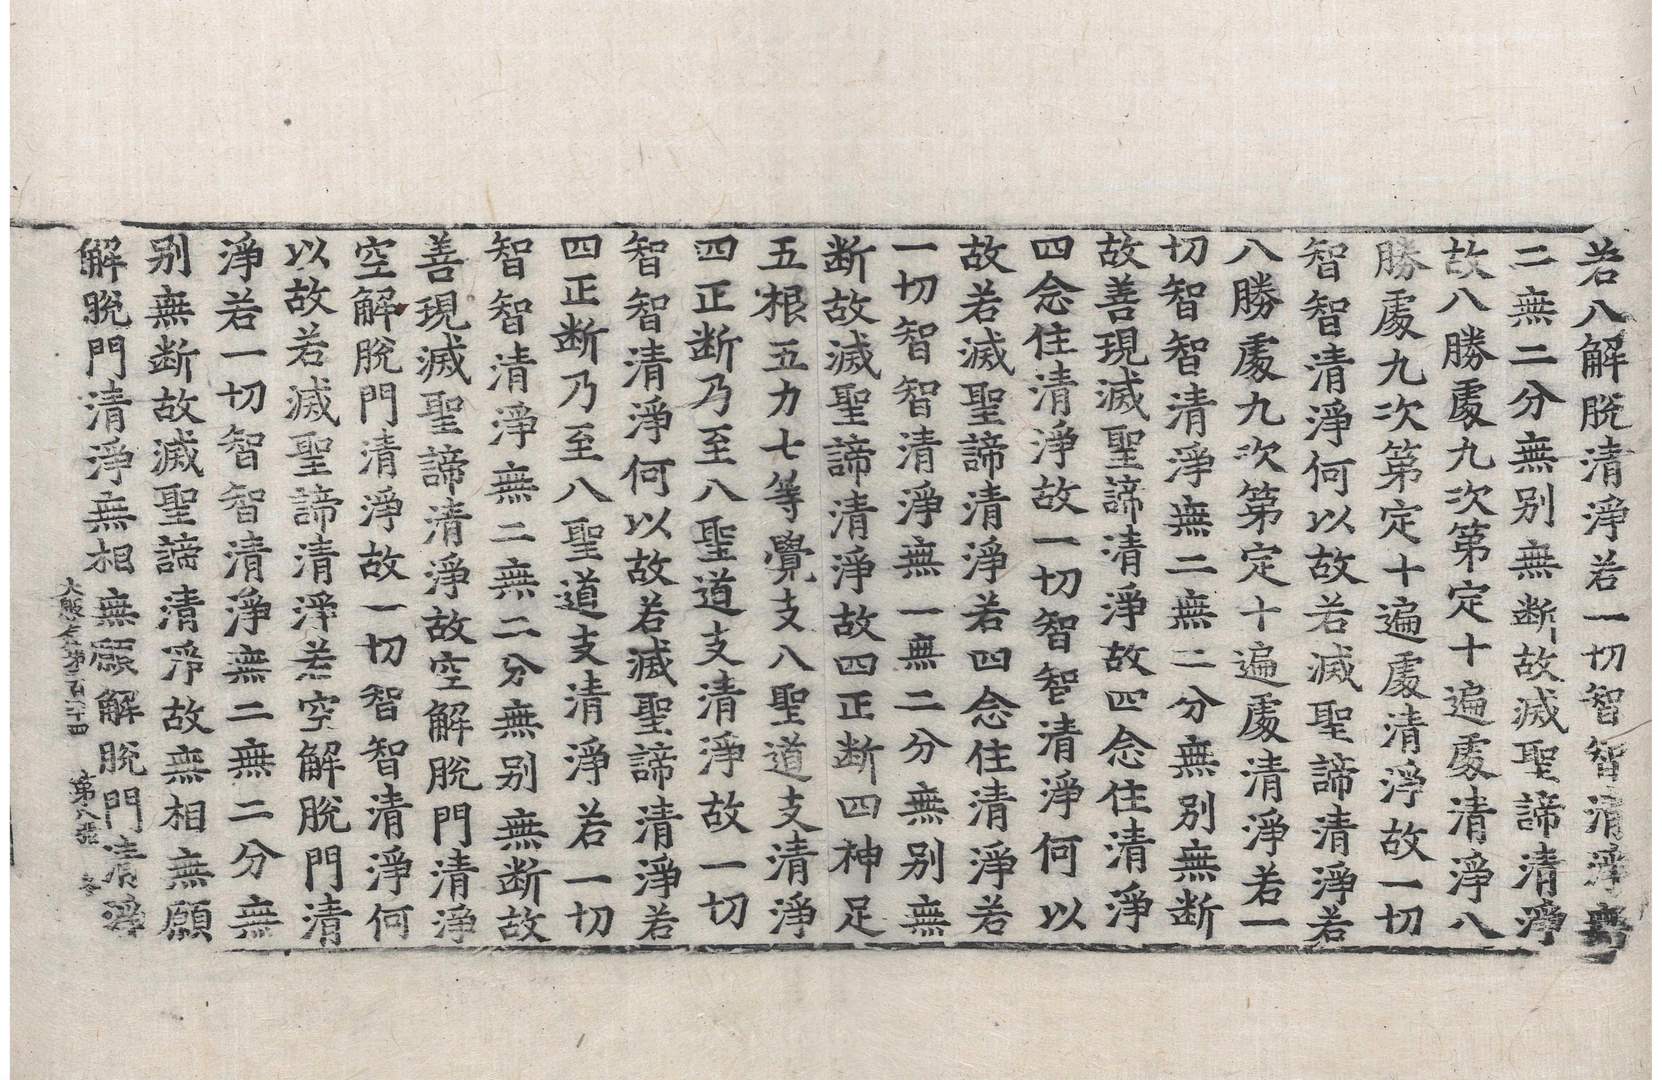 若八解脫清淨若一切智智清淨無
二無二分無别無断故滅聖諦清淨
故八勝處九次第定十遍處清淨八
勝處九次第定十遍處清淨故一切
智智清淨何以故若滅聖諦清淨若
八勝處九次第定十遍處清淨若一
切智智清淨無二無二分無别無断
故善現滅聖諦清淨故四念住清淨
四念住清淨故一切智智清淨何以
故若滅聖諦清淨若四念住清淨若
一切智智清淨無二無二分無别無
断故滅聖諦清淨故四正断四神足
五根五力七等覺支八聖道支清淨
四正断乃至八聖道支清淨故一切
智智清淨何以故若滅聖諦清淨若
四正断乃至八聖道支清淨若一切
智智清淨無二無二分無别無断故
善現滅聖諦清淨故空解脫門清淨
空解脫門清淨故一切智智清淨何
以故若滅聖諦清淨若空解脫門清
淨若一切智智清淨無二無二分無
别無断故滅聖諦清淨故無相無願
解脫門清淨無相無願解脫門清淨
大般若第二百六十四 第八張